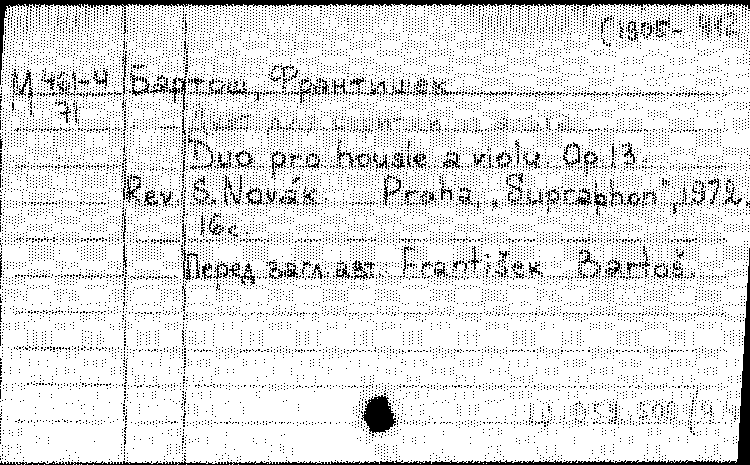 (1905-
М 461-4 Бартош, Франтишек
71
Duo pro housle a violu. Op. 13.
Rev. S. Novák. Praha, „Supraphon", 1972.
16 с.
Перед загл. авт. František Bartoš.